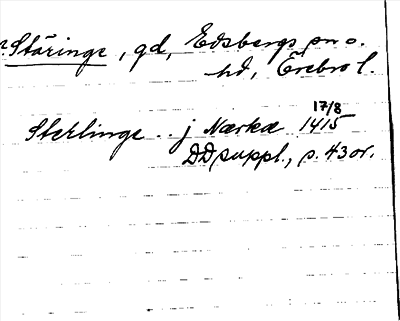 Stäringe, gd, Edsbergs sn o.
hd, Örebro l.
17/8
Sterlinge .. j Nærka 1415
DD suppl., s. 43 or.